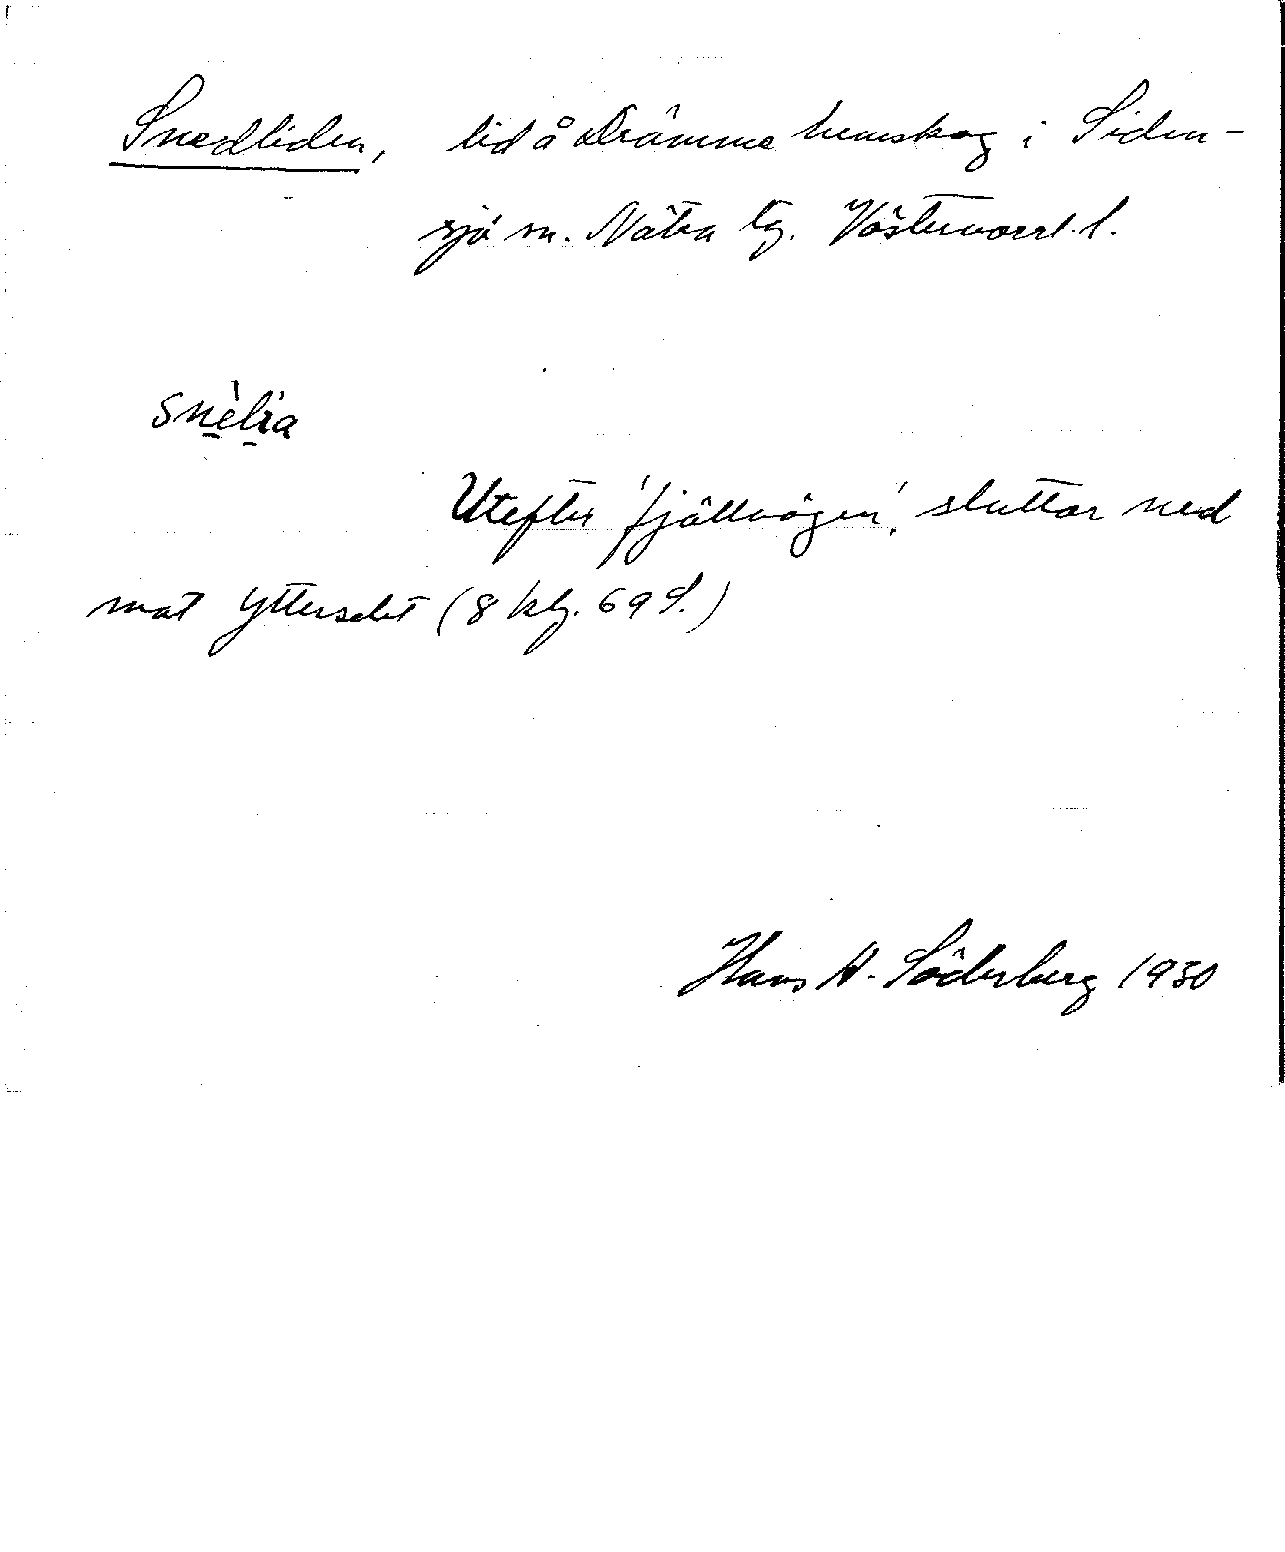 Snedliden, lid å Drömme hemskog i Siden-
sjö sn. Nätra tg. Västernorrl. l.
snèlìa
Utefter 'fjällvägen', sluttar ned
mot Yttersel (8 kbg. 69 S.)
Hans A. Söderberg 1930